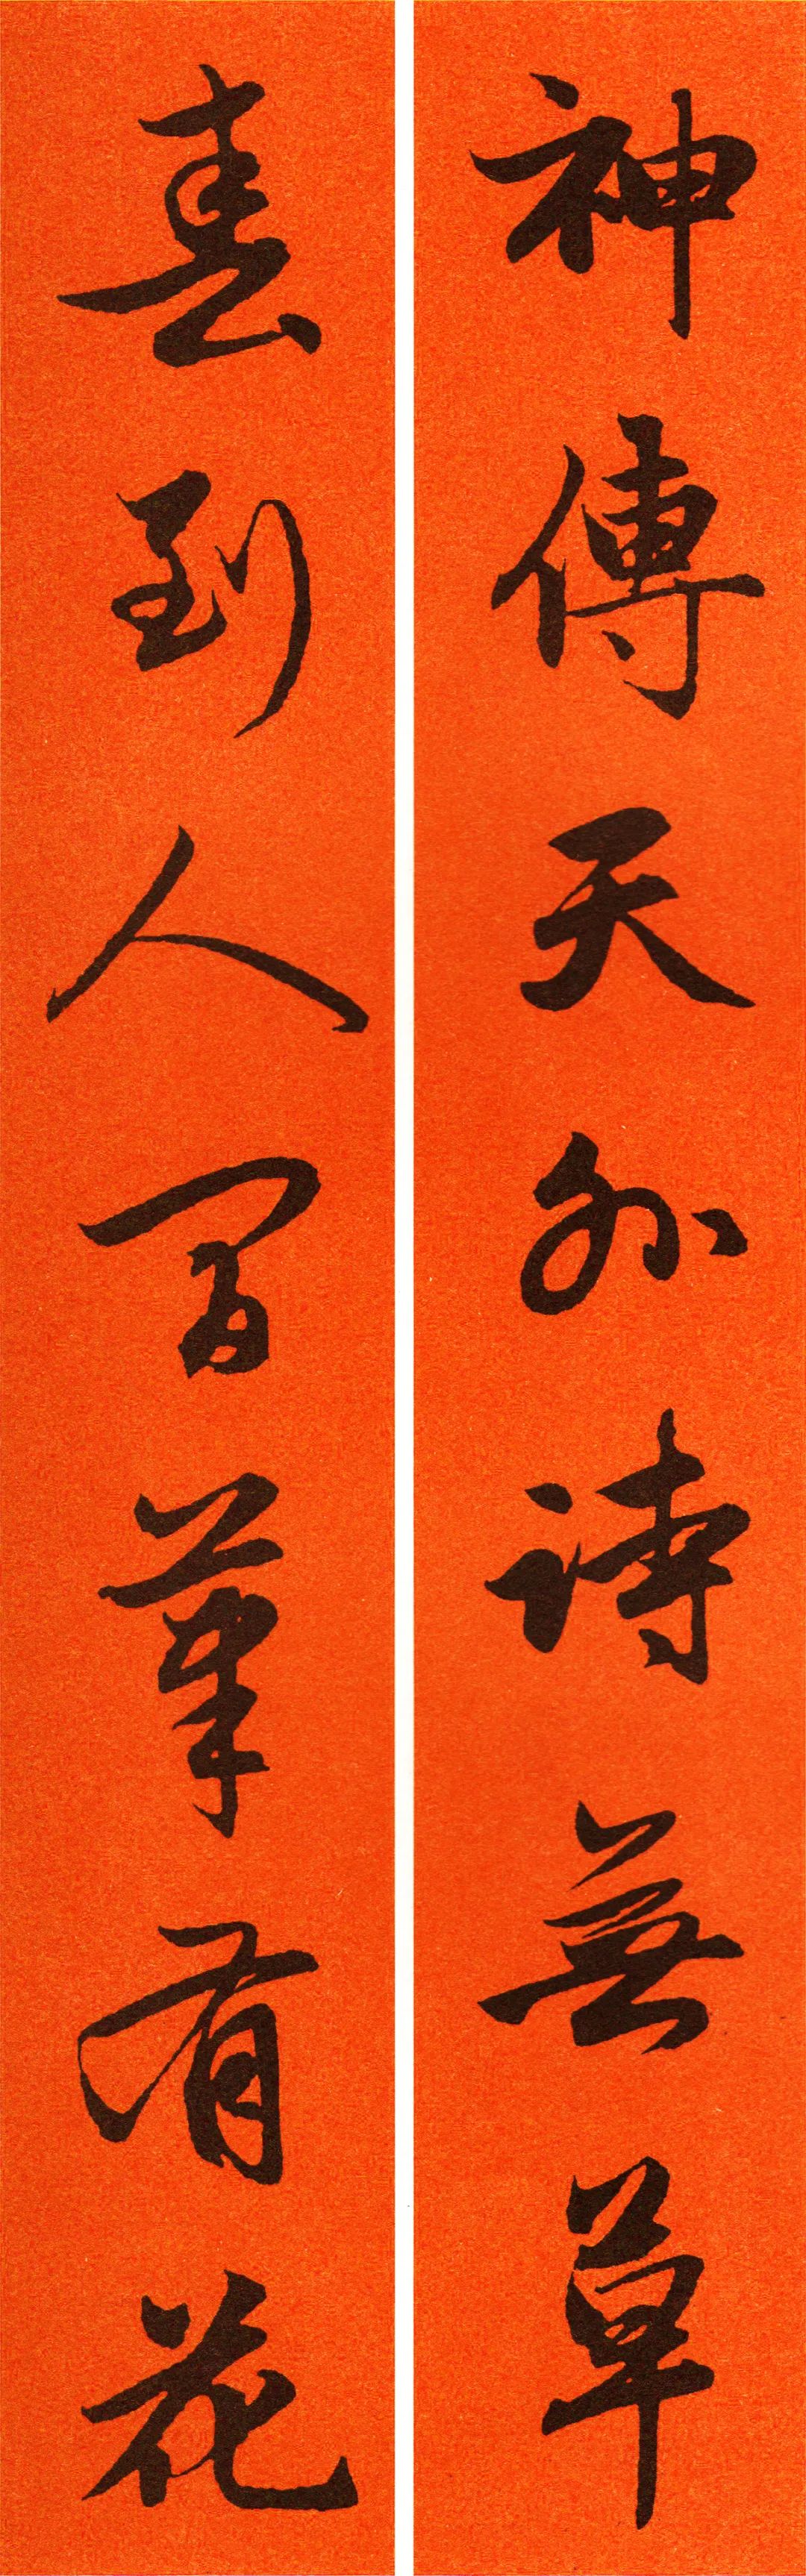 神傳天外詩無草
喜到人間筆有花